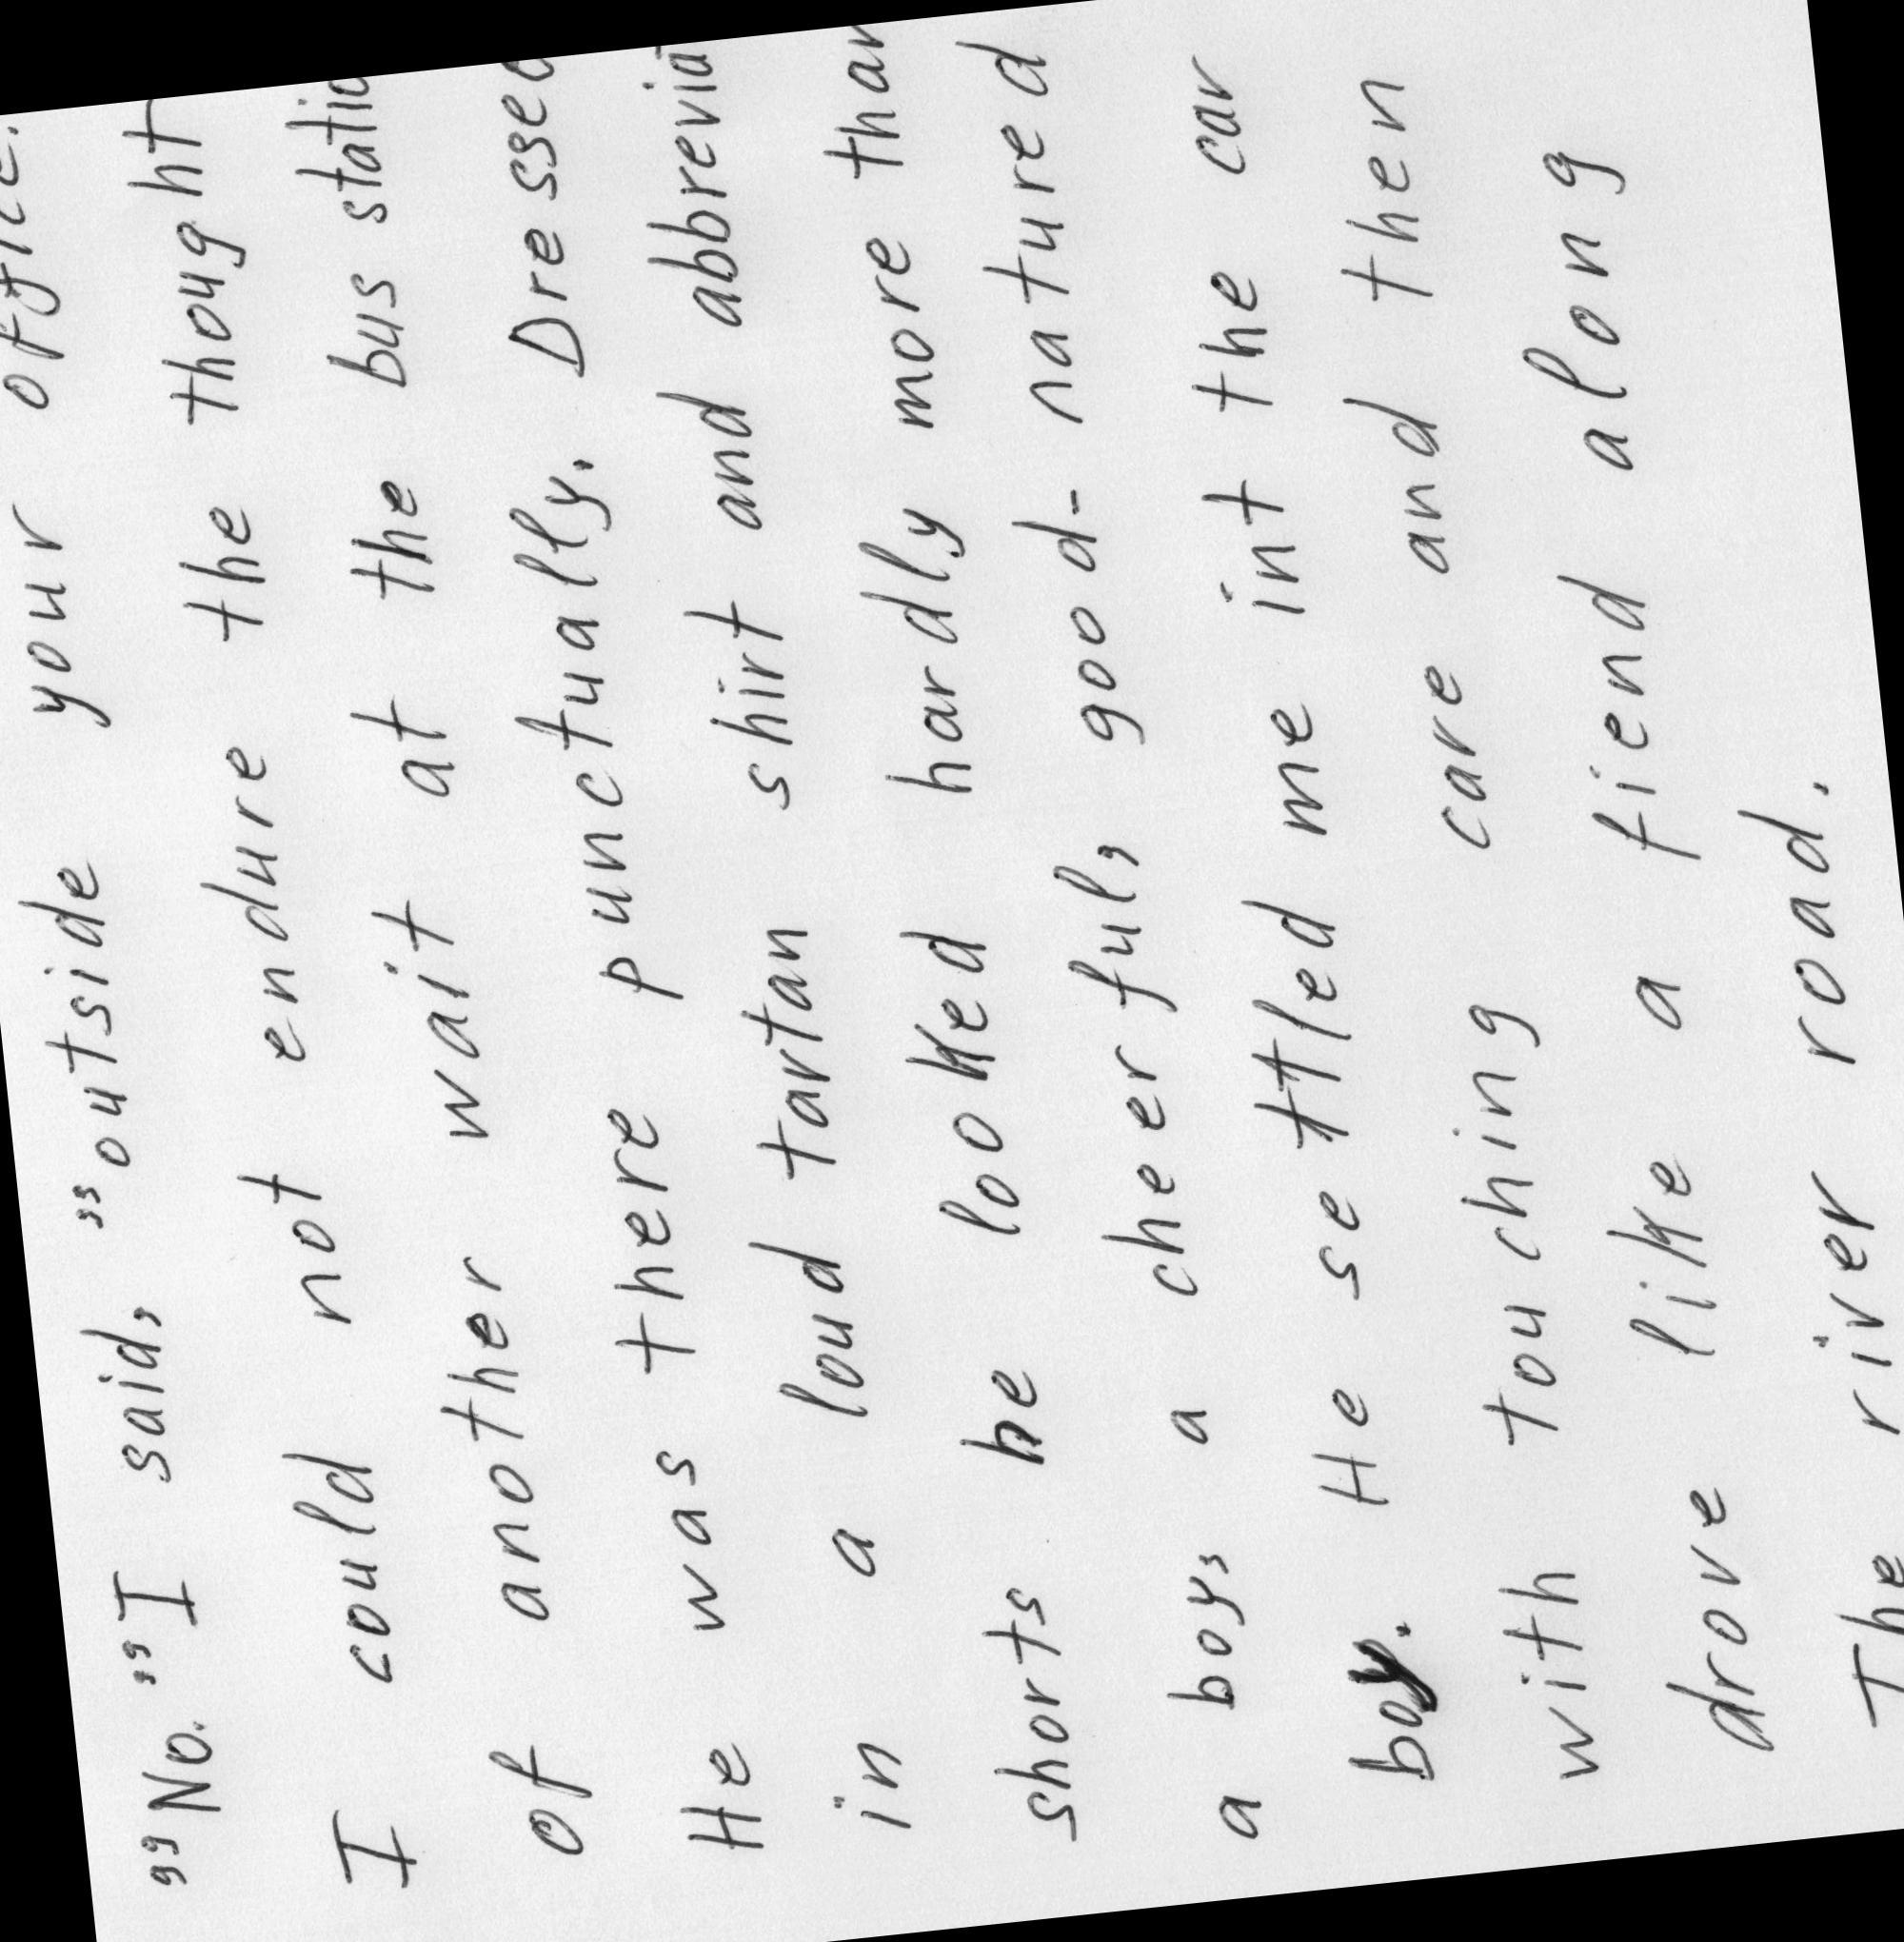 "No." "I said, "outside your office.
I could not endure the thought
of another wait at the bus statio
He was there punctually. Dressed
in a loud tartan shirt and abbrevia
shorts he looked hardly more than
a boy, a cheerful, good-natured
boy. He settled me int the car
with touching care and then
drove like a fiend along
The river road.